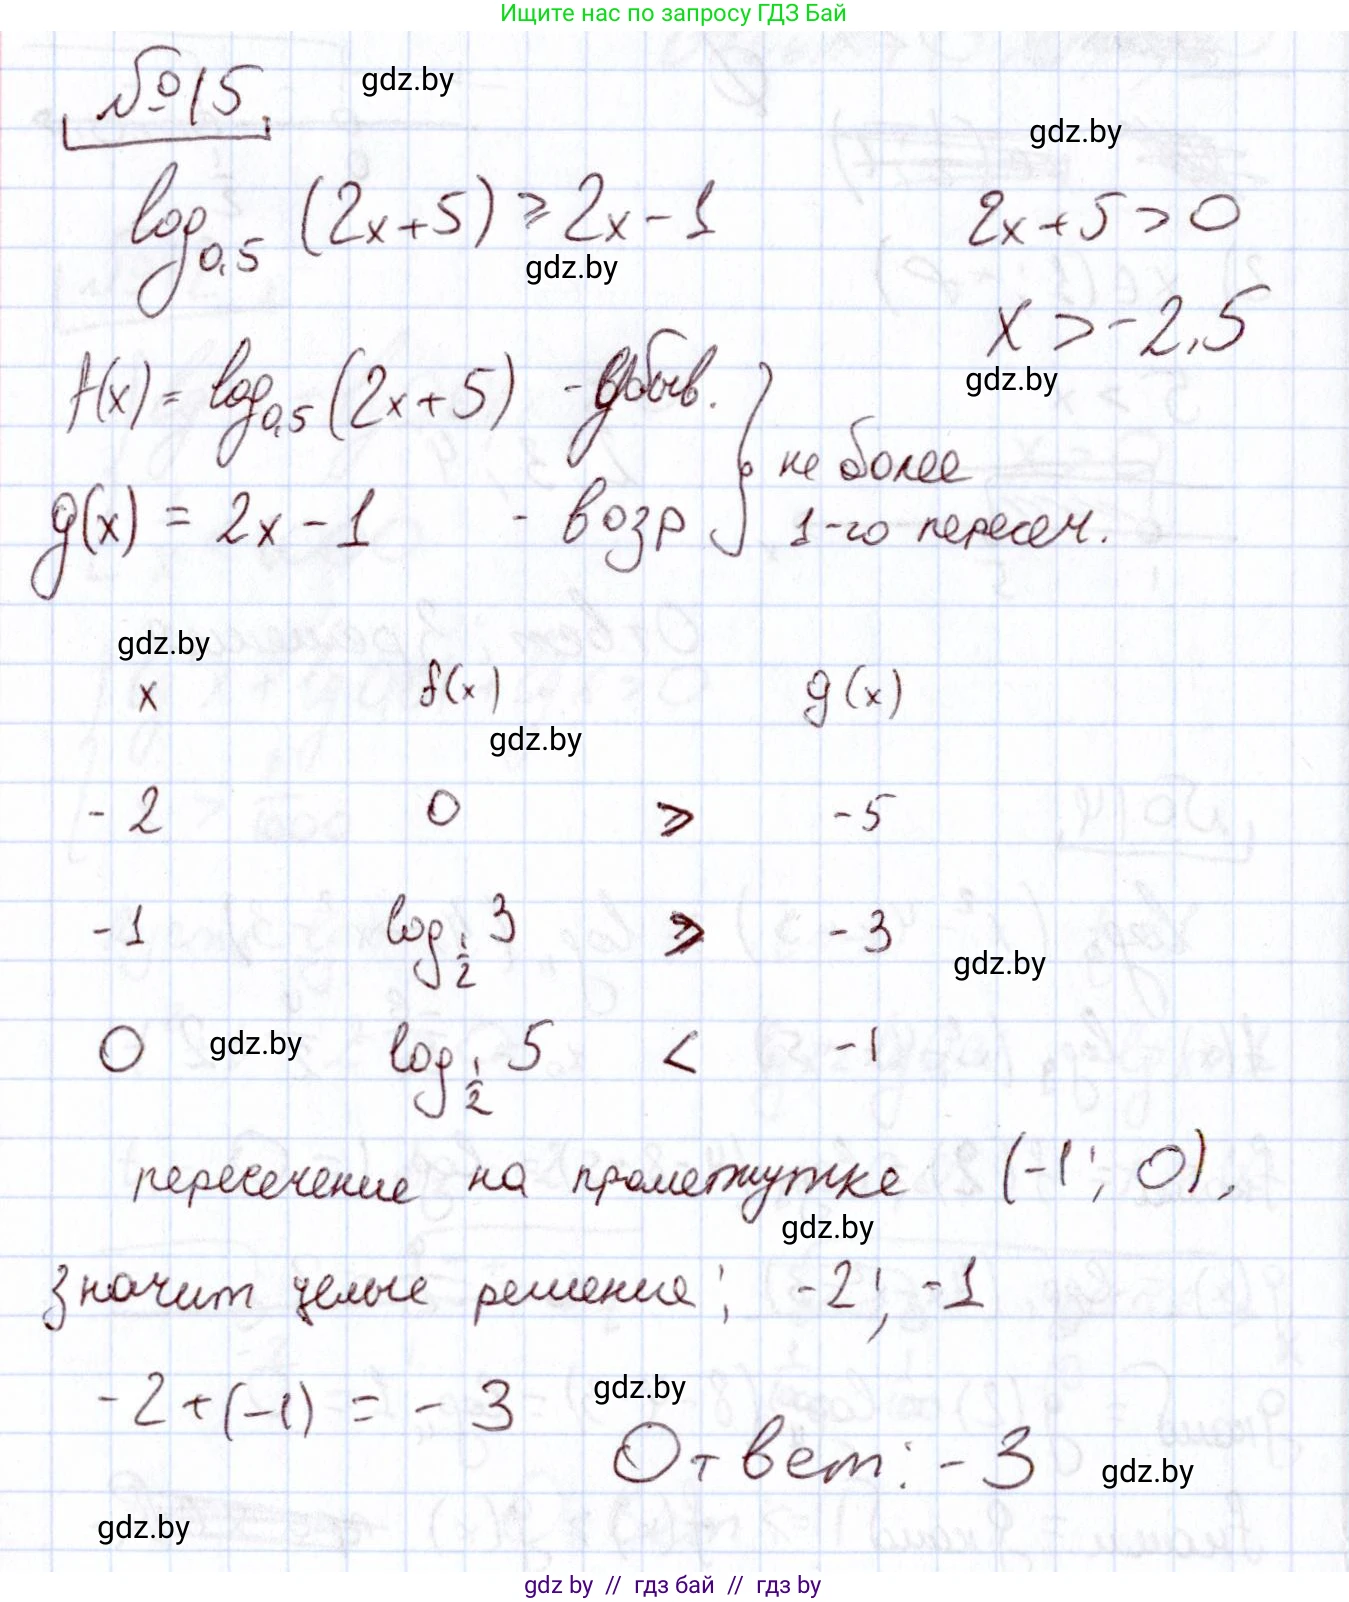 Ищите нас по запросу ГДЗ Бай
№15
gdz.by
gdz.by
log₀,₅ (2x+5) ⩾ 2x-1
2x+5>0
gdz.by
x>-2,5
gdz.by
f(x) = log₀,₅(2x+5) - убыв.
g(x) = 2x-1 - возр
не более
1-го пересеч.
gdz.by
x f(x) g(x)
gdz.by
-2 0 ⩾ -5
-1 log_{1/2} 3 ⩾ -3
gdz.by
0 gdz.by log_{1/2} 5 < -1
пересечение на промежутке (-1; 0),
gdz.by
значит целые решение; -2; -1
-2+(-1) = -3
gdz.by
Ответ: -3
gdz.by
gdz.by
gdz by // гдз бай // гдз by